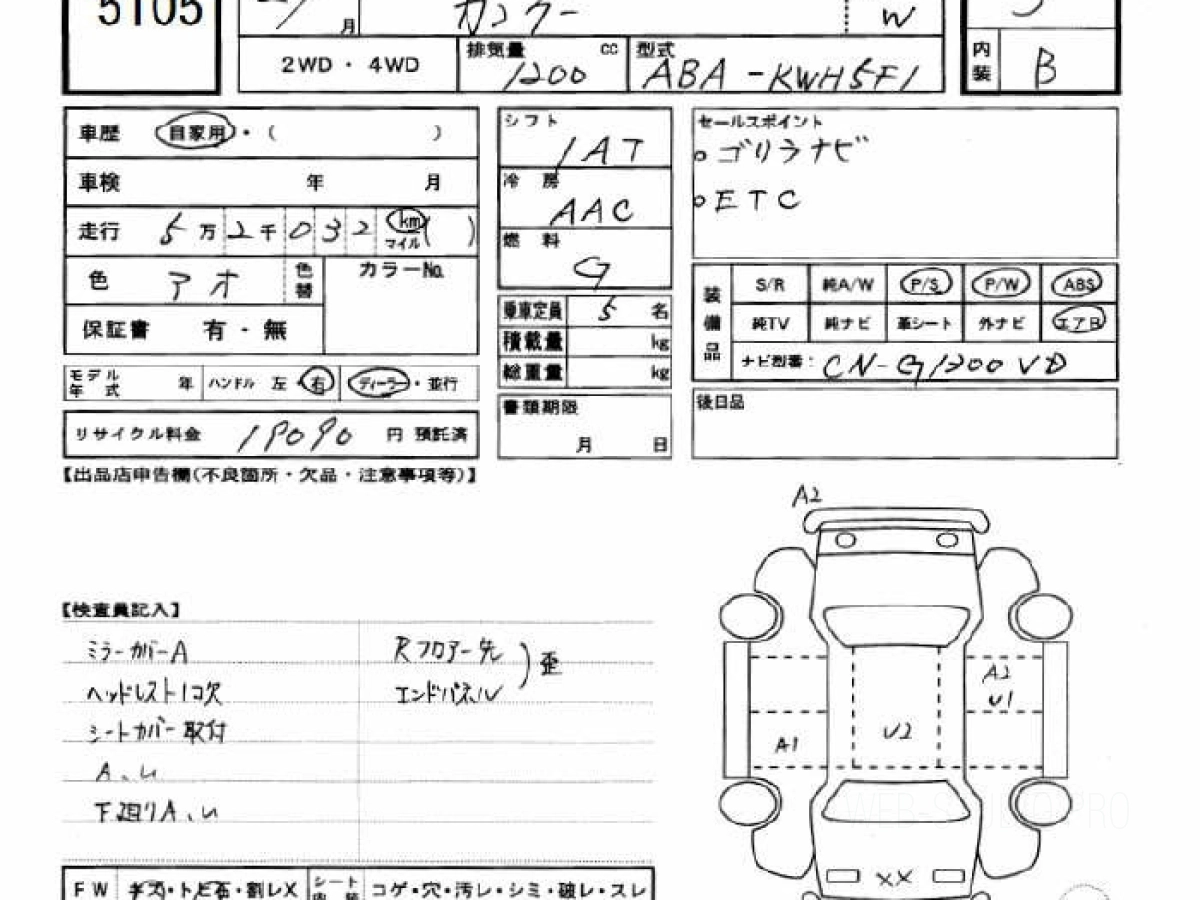 5105
月
カングー
W
2WD・4WD
排気量 cc
1200
型式
ABA-KWH5F1
内装
B
車歴 自家用・( )
車検 年 月
走行 5万2千032 km マイル( )
色 アオ 色替
カラーNo.
保証書 有・無
モデル年式 年 ハンドル 左 右 ディーラー・並行
リサイクル料金 19090 円 預託済
シフト
1AT
冷房
AAC
燃料
G
乗車定員 5 名
積載量 kg
総重量 kg
書類期限
月 日
セールスポイント
○ゴリラナビ
○ETC
装備品
S/R 純A/W P/S P/W ABS
純TV 純ナビ 革シート 外ナビ エアB
ナビ型番: CN-G1200VD
後日品
【出品店申告欄(不良箇所・欠品・注意事項等)】
【検査員記入】
ミラーカバーA
ヘッドレスト1コ欠
シートカバー取付
A、U
下廻りA、U
Rフロアー先
エンドパネル
歪
A2
A2
U1
U2
A1
XX
WEB-STUDIO PRO
FW キズ・トビ石・割レX
シート内装 コゲ・穴・汚レ・シミ・破レ・スレ